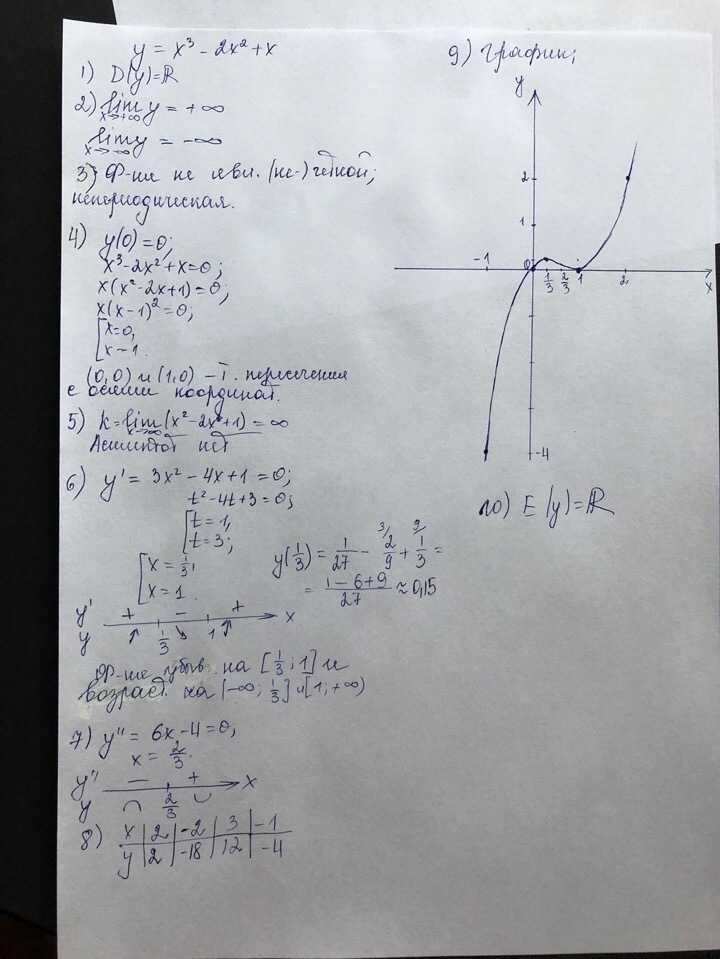 y = x³ - 2x² + x
1) D(y)=ℝ
2) lim y = +∞
x→+∞
lim y = -∞
x→-∞
3) Ф-ция не явл. (не-) чётной;
непериодическая.
4) y(0)=0;
x³-2x²+x=0;
x(x²-2x+1)=0;
x(x-1)²=0;
[x=0,
[x-1.
(0,0) и (1,0) - т. пересечения
с осями координат.
5) k=lim (x²-2x+1) = ∞
x→∞
Асимптот нет
6) y' = 3x² - 4x+1 = 0;
t²-4t+3=0;
[t=1,
[t=3;
[x=1/3,
[x=1.
y(1/3) = 1/27 - 2/9 3/ + 1/3 9/ =
= (1-6+9)/27 ≈ 0,15
y' + - + x
y ↗ 1/3 ↘ 1 ↗
Ф-ция убыв. на [1/3; 1] и
возраст. на (-∞; 1/3] и [1; +∞)
7) y'' = 6x-4=0,
x = 2/3.
y'' - + x
y ∩ 2/3 ∪
8) x | 2 | -2 | 3 | -1
y | 2 | -18 | 12 | -4
9) график;
y
2
1
-1 0 1/3 2/3 1 2 x
-4
10) E(y)=ℝ